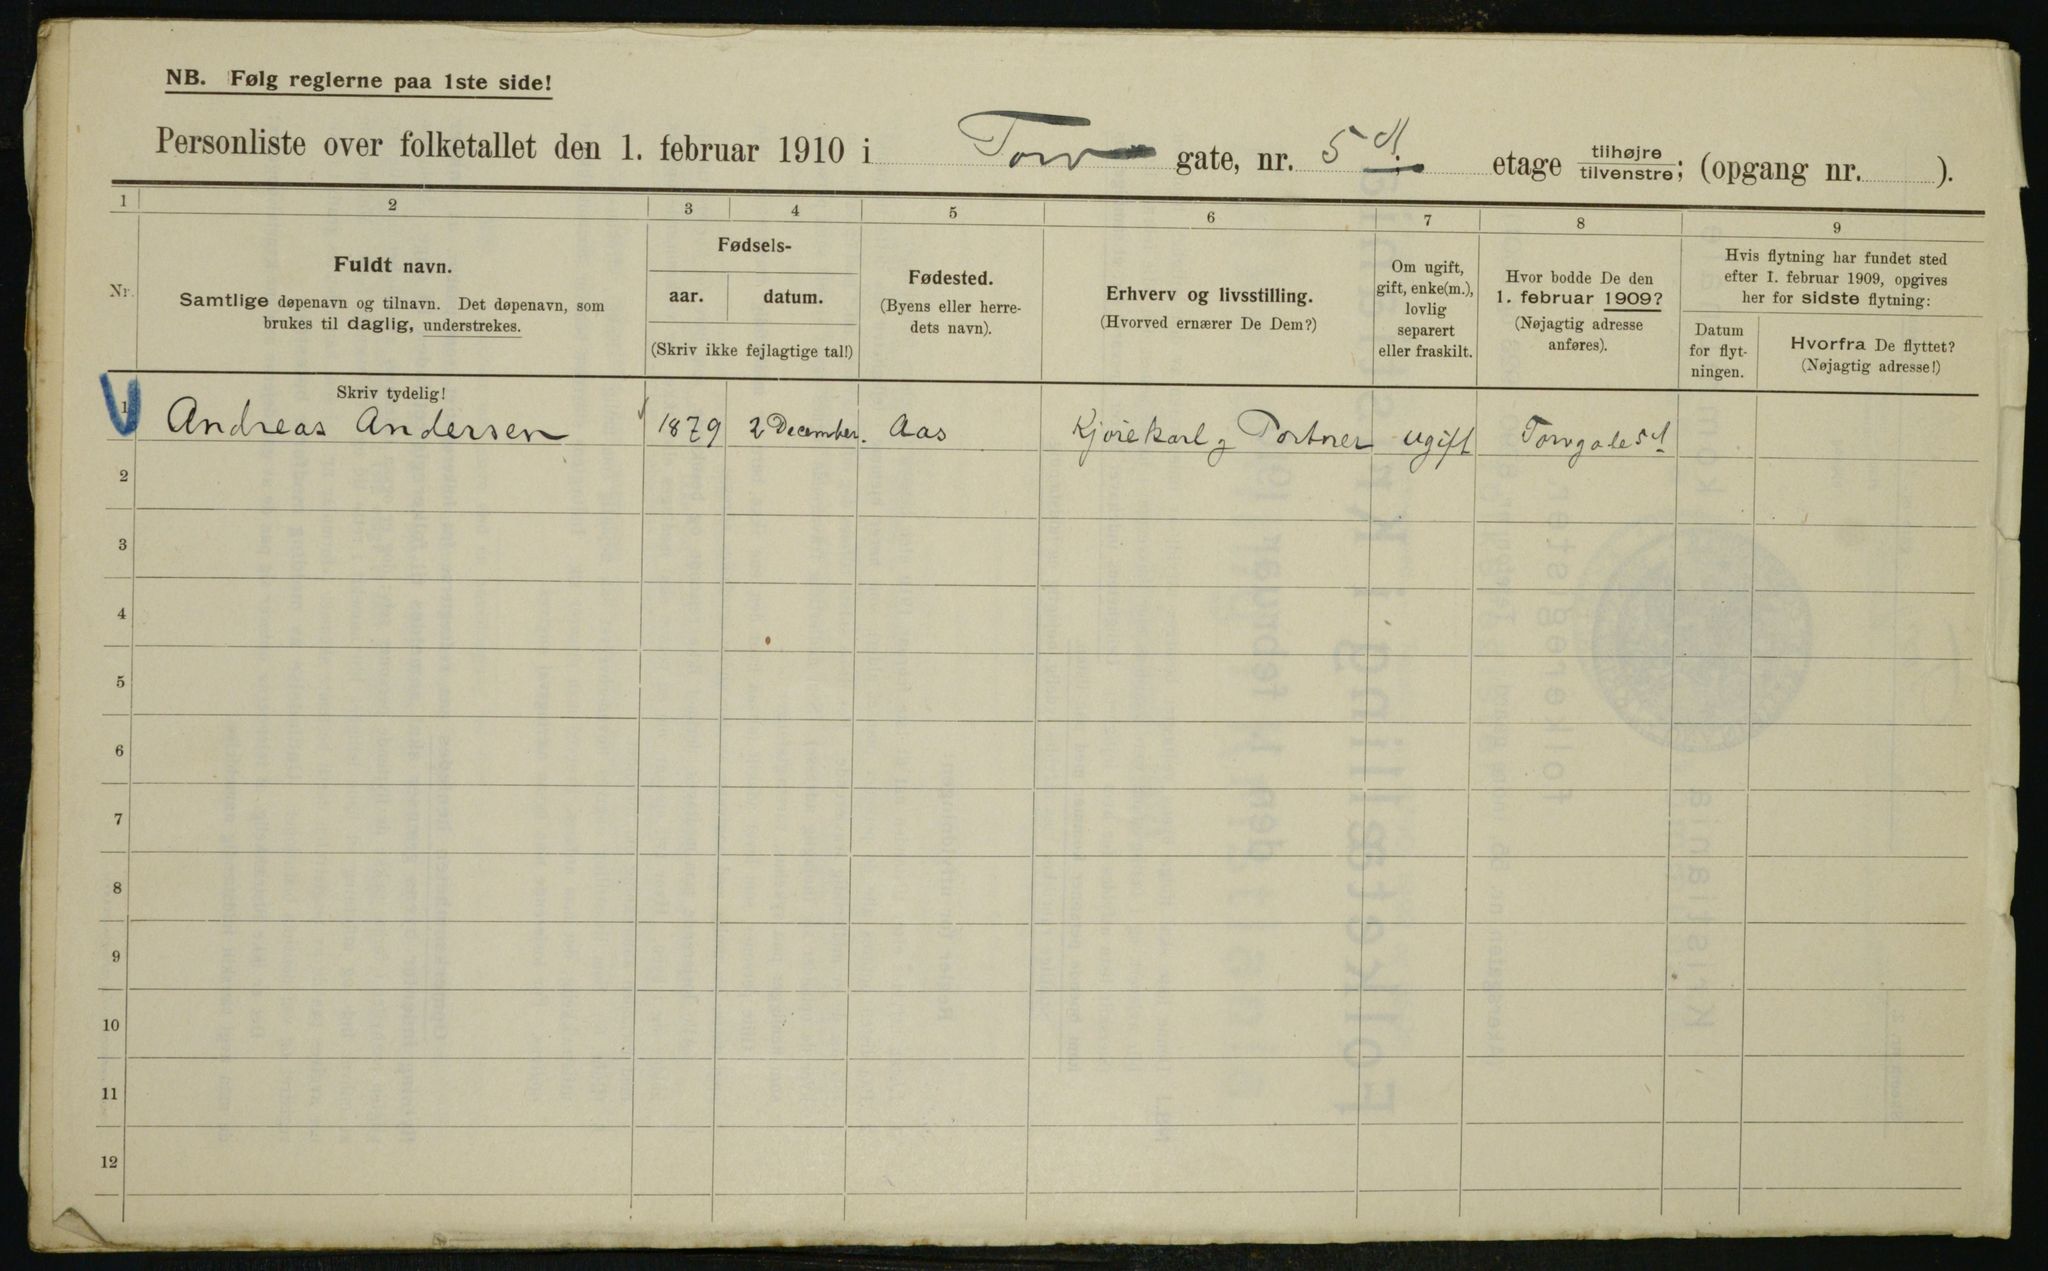 NB. Følg reglerne paa 1ste side!
Personliste over folketallet den 1. februar 1910 i Torv gate, nr. 5 d. etage tilhøjre tilvenstre; (opgang nr. ).
1 2 3 4 5 6 7 8 9
Nr.
Fuldt navn.
Samtlige døpenavn og tilnavn. Det døpenavn, som
brukes til daglig, understrekes.
Fødsels-
aar. datum.
(Skriv ikke fejlagtige tal!)
Fødested.
(Byens eller herre-
dets navn).
Erhverv og livsstilling.
(Hvorved ernærer De Dem?)
Om ugift,
gift, enke(m.),
lovlig
separert
eller fraskilt.
Hvor bodde De den
1. februar 1909?
(Nøjagtig adresse
anføres).
Hvis flytning har fundet sted
efter 1. februar 1909, opgives
her for sidste flytning:
Datum
for flyt-
ningen.
Hvorfra De flyttet?
(Nøjagtig adresse!)
Skriv tydelig!
1 Andreas Andersen 1879 2 December. Aas Kjørekarl og Portner ugift Torvgate 5 d
2
3
4
5
6
7
8
9
10
11
12